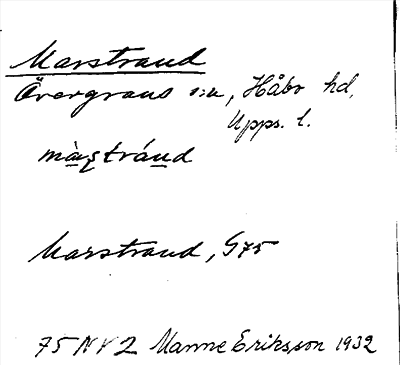 Marstrand
Övergrans s:n, Håbo hd,
Upps. l.
màʂtránd
Marstrand, G75
75 NV2 Manne Eriksson 1932